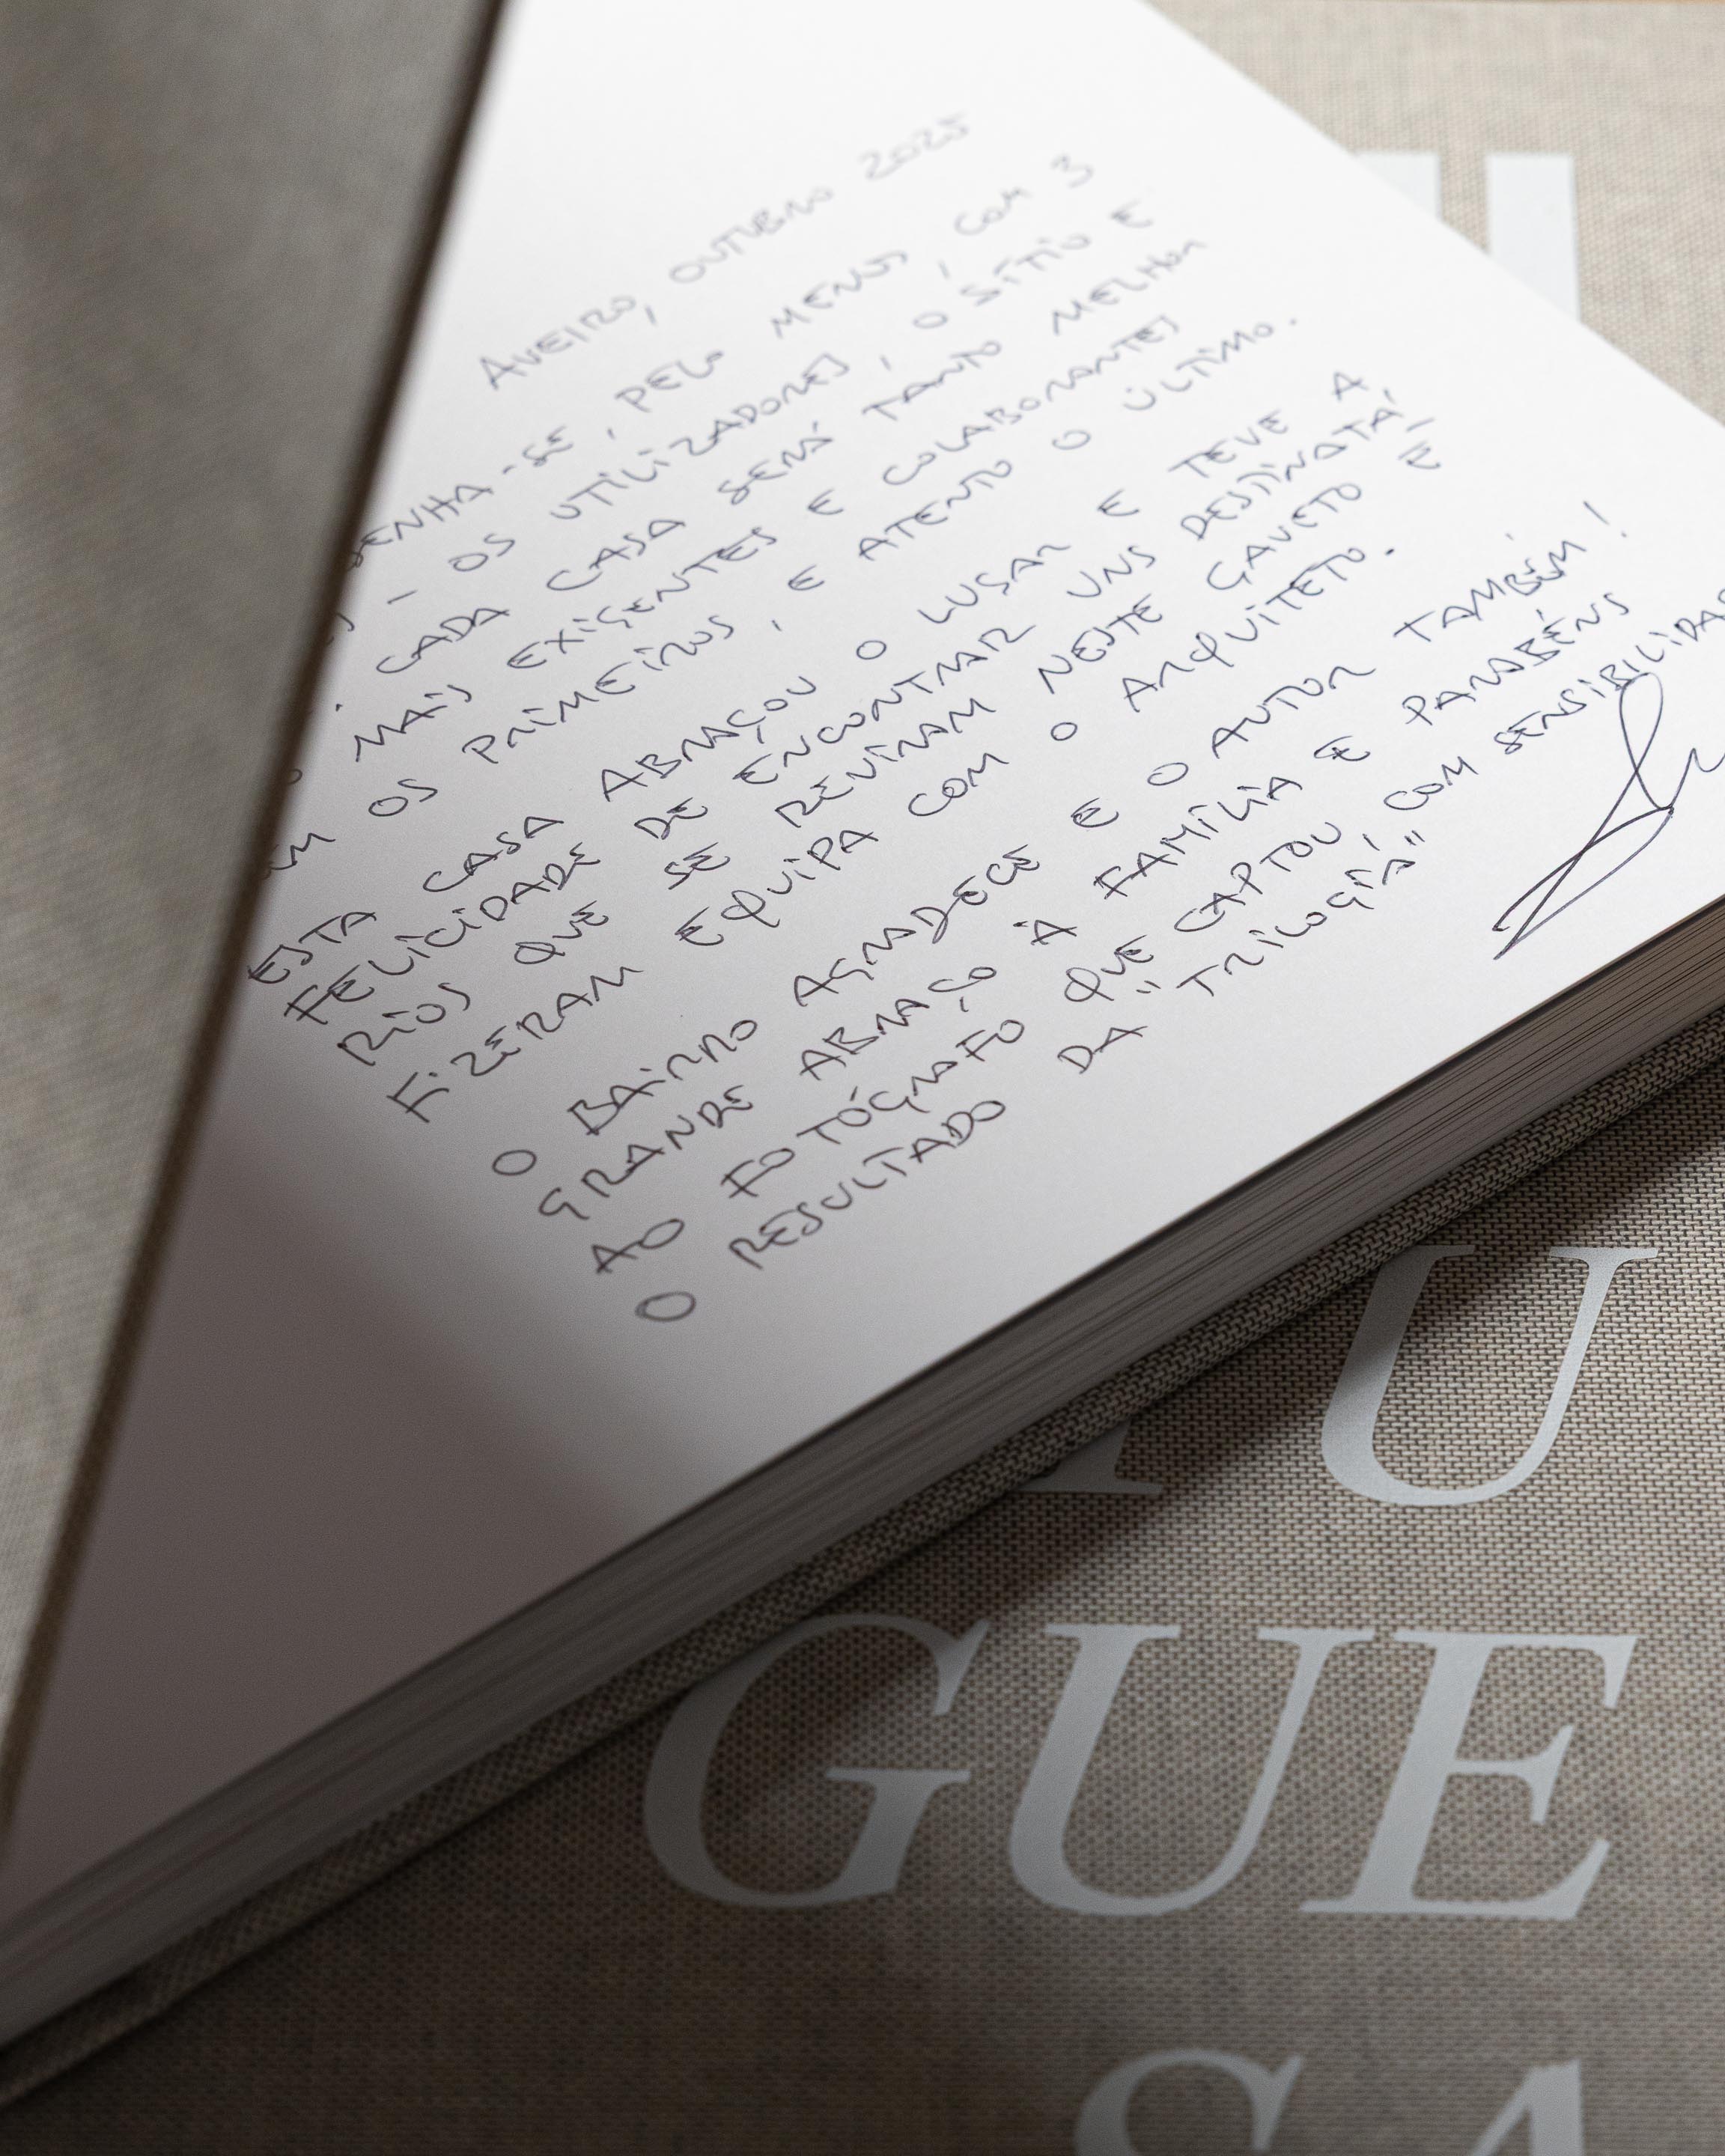 AVEIRO, OUTUBRO 2025
SENHA-SE, PELO MENOS, COM 3
- OS UTILIZADORES, O SÍTIO E
. CADA CASA SERÁ TANTO MELHOR
MAIS EXIGENTES E COLABORANTES
OS PRIMEIROS, E ATENTO O ÚLTIMO.
ESTA CASA ABRAÇOU O LUGAR E TEVE A
FELICIDADE DE ENCONTRAR UNS DESTINATÁ-
RIOS QUE SE REVIRAM NESTE GAVETO E
FIZERAM EQUIPA COM O ARQUITETO.
O BAIRRO AGRADECE E O AUTOR TAMBÉM!
GRANDE ABRAÇO À FAMÍLIA E PARABÉNS
AO FOTÓGRAFO QUE CAPTOU, COM SENSIBILIDAD
O RESULTADO DA "TRILOGIA"
U
GUE
SA